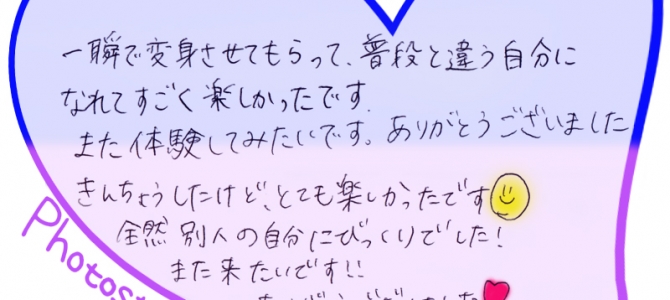 一瞬で変身させてもらって、普段と違う自分に
なれてすごく楽しかったです.
また体験してみたいです。ありがとうございました
きんちょうしたけど、とても楽しかったです
全然別人の自分にびっくりでした!
また来たいです!!
Photos